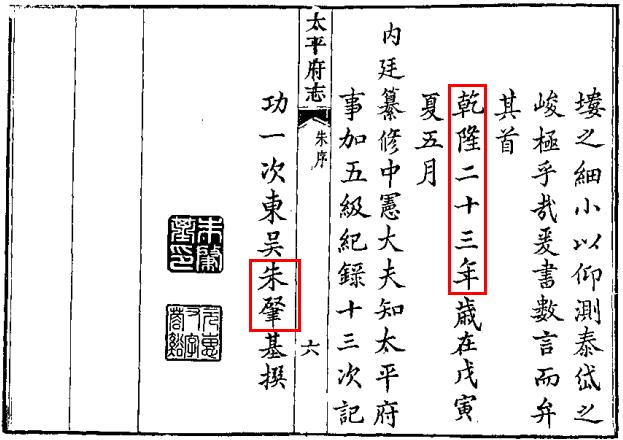 塿之細小以仰測泰岱之
峻極乎哉爰書數言而弁
其首
乾隆二十三年歲在戊寅
夏五月
內廷纂修中憲大夫知太平府
事加五級紀錄十三次記
功一次東吳朱肇基撰
太平府志
朱序
六